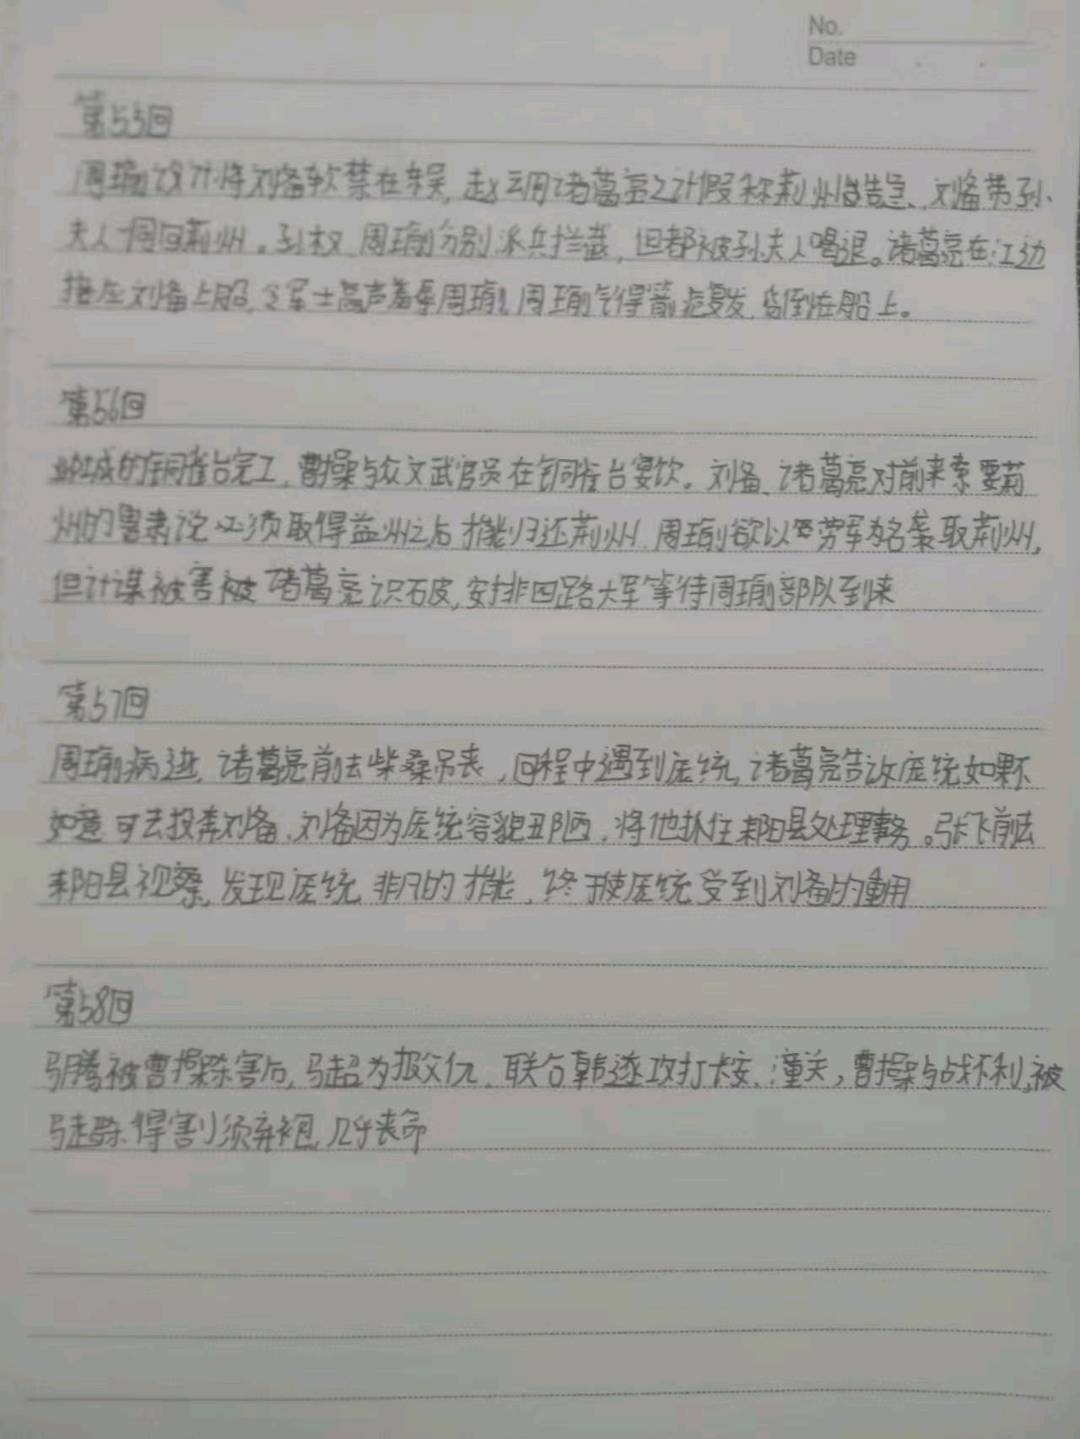 No.
Date
第55回
周瑜设计将刘备软禁在东吴,赵云用诸葛亮之计假称荆州告急、刘备带孙
夫人一同回荆州。孙权、周瑜分别派兵拦截,但都被孙夫人喝退。诸葛亮在江边
接应刘备上船,令军士高声羞辱周瑜,周瑜气得箭疮复发,倒在船上。
第56回
邺城的铜雀台完工,曹操与众文武官员在铜雀台宴饮。刘备、诸葛亮对前来索要荆
州的鲁肃说必须取得益州之后才能归还荆州,周瑜欲以劳军为名袭取荆州,
但计谋被害被诸葛亮识破,安排四路大军等待周瑜部队到来
第57回
周瑜病逝,诸葛亮前去柴桑吊丧,回程中遇到庞统,诸葛亮告诉庞统如果不
如意可去投奔刘备、刘备因为庞统容貌丑陋,将他派任耒阳县处理事务。张飞前去
耒阳县视察,发现庞统非凡的才能,终于使庞统受到刘备的重用
第58回
马腾被曹操杀害后,马超为报父仇、联合韩遂攻打长安、潼关,曹操与战不利,被
马超杀得割须弃袍,几乎丧命